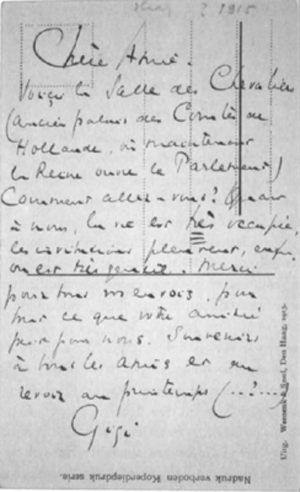 ? 1915
Chère Amie.
Voici la Salle des Chevaliers
(ancien palais des Comtes de
Hollande, où maintenant
la Reine ouvre le Parlement)
Comment allez-vous? Quant
à nous, la vie est très occupée,
les invitations pleuvent, enfin
on est très gentil. Merci
pour tous vos envois, pour
tout ce que votre amitié
pour nous. Souvenirs
à tous les amis et au
revoir au printemps (...?...)
Gigi
Uitg. Weenenk & Snel, Den Haag, 1915.
Nadruk verboden Koperdiepdruk serie.